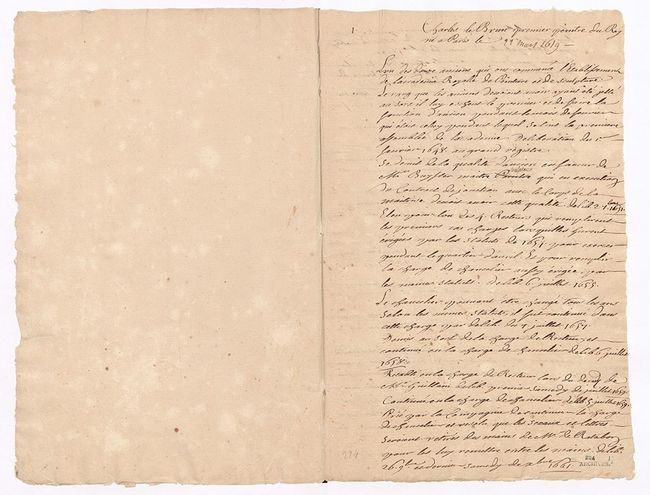 1
Charles le Brun premier peintre du Roy
né a Paris le 22 mars 1619
L'un des douze anciens qui ont commencé l'Etablissement
de l'academie Royale de Peinture et de Sculpture
Le rang que les anciens devoient avoir ayant été jetté
au sort il luy echeut le premier et de faire la
fonction d'ancien pendant le mois de fevrier
qui étoit celuy pendant lequel se tint la premiere
assemblée de la academie Deliberation du 1er
fevrier 1648 au grand registre
Se demit de la qualité d'ancien en faveur de
Mr Buyster maitre qui en execution
du Contract de jonction avec le Corps de la
maitrise devoit avoir cette qualité
Elu pour l'un des 4 Recteurs qui remplirent
les premiers ces charges lorsquelles furent
erigées par les statuts de 1655 pour exercer
pendant le quartier d'avril Et pour remplir
la charge de chancelier aussy erigée par
les mesmes statuts delib. 6 juillet 1655
Le chancelier pouvant être changé tous les ans
selon les mesmes statuts il fut continué dans
cette charge par delib. du 7 juillet 1657
Remis au sort de la charge de Recteur et
continué en la charge de chancelier delib. 6 juillet
1658
Restably en la charge de Recteur lors du deceds de
Mr Guillain delib. premier samedy de juillet 1659
Continué en la charge de chancelier delib. 5 juillet 1659
Prié par la Compagnie de continuer la charge
de chancelier et resolu que les sceaux et lettres
seroient retirés des mains de Mr de Ratabon
pour les luy remettre entre les mains delib.
samedy de 1661
224
ARCHIVES